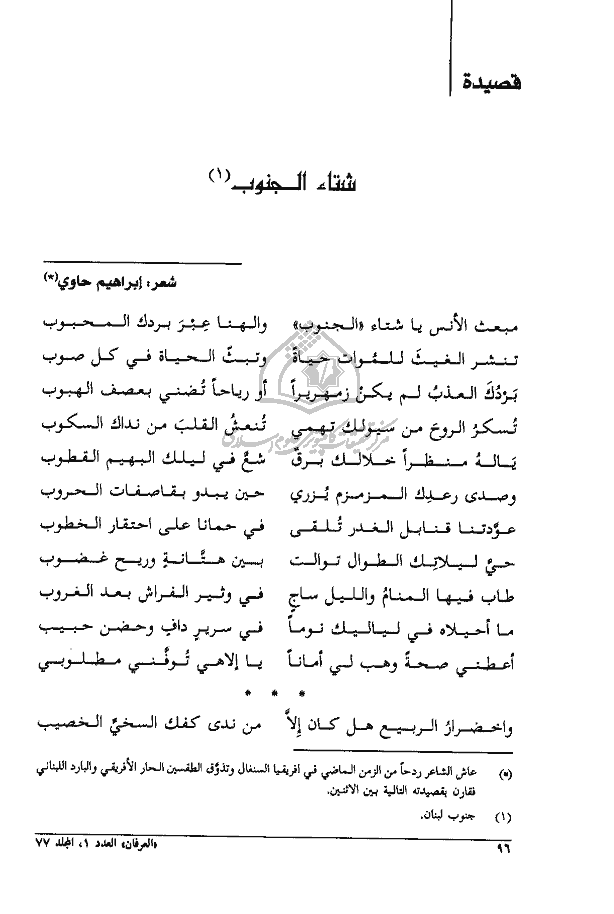 قصيدة
شتاء الجنوب(١)
شعر: إبراهيم حاوي(*)
مبعث الأنس يا شتاء «الجنوب» والهنا عِبْرَ بردك المحبوب
تنشر الغيثَ للمُوات حياةً وتبثّ الحياة في كل صوب
بَرْدُكَ العذبُ لم يكنْ زمهريراً أو رياحاً تُضني بعصف الهبوب
تُسكرُ الروحَ من سيولك تهمي تُنعشُ القلبَ من نداك السكوب
يَالهُ منظراً خلالك برقٌ شعَّ في ليلك البهيم القطوب
وصدى رعدِك المزمزم يُزري حين يبدو بقاصفات الحروب
عوّدتنا قنابل الغدر تُلقى في حمانا على احتقار الخطوب
حيِّ ليلاتِك الطوال توالت بين هتَّانةٍ وريح غضوب
طاب فيها المنامُ والليل ساجٍ في وثير الفراش بعد الغروب
ما أحيلاه في لياليك نوماً في سريرٍ دافئٍ وحضن حبيب
أعطني صحةً وهب لي أماناً يا إلاهي تُوفّني مطلوبي
* * *
واخضرارُ الربيع هل كان إلاَّ من ندى كفك السخيّ الخصيب
(*) عاش الشاعر ردحاً من الزمن الماضي في افريقيا السنغال وتذوّق الطقسين الحار الأفريقي والبارد اللبناني
فقارن بقصيدته التالية بين الاثنين.
(١) جنوب لبنان.
٩٦ «العرفان» العدد ١، المجلد ٧٧